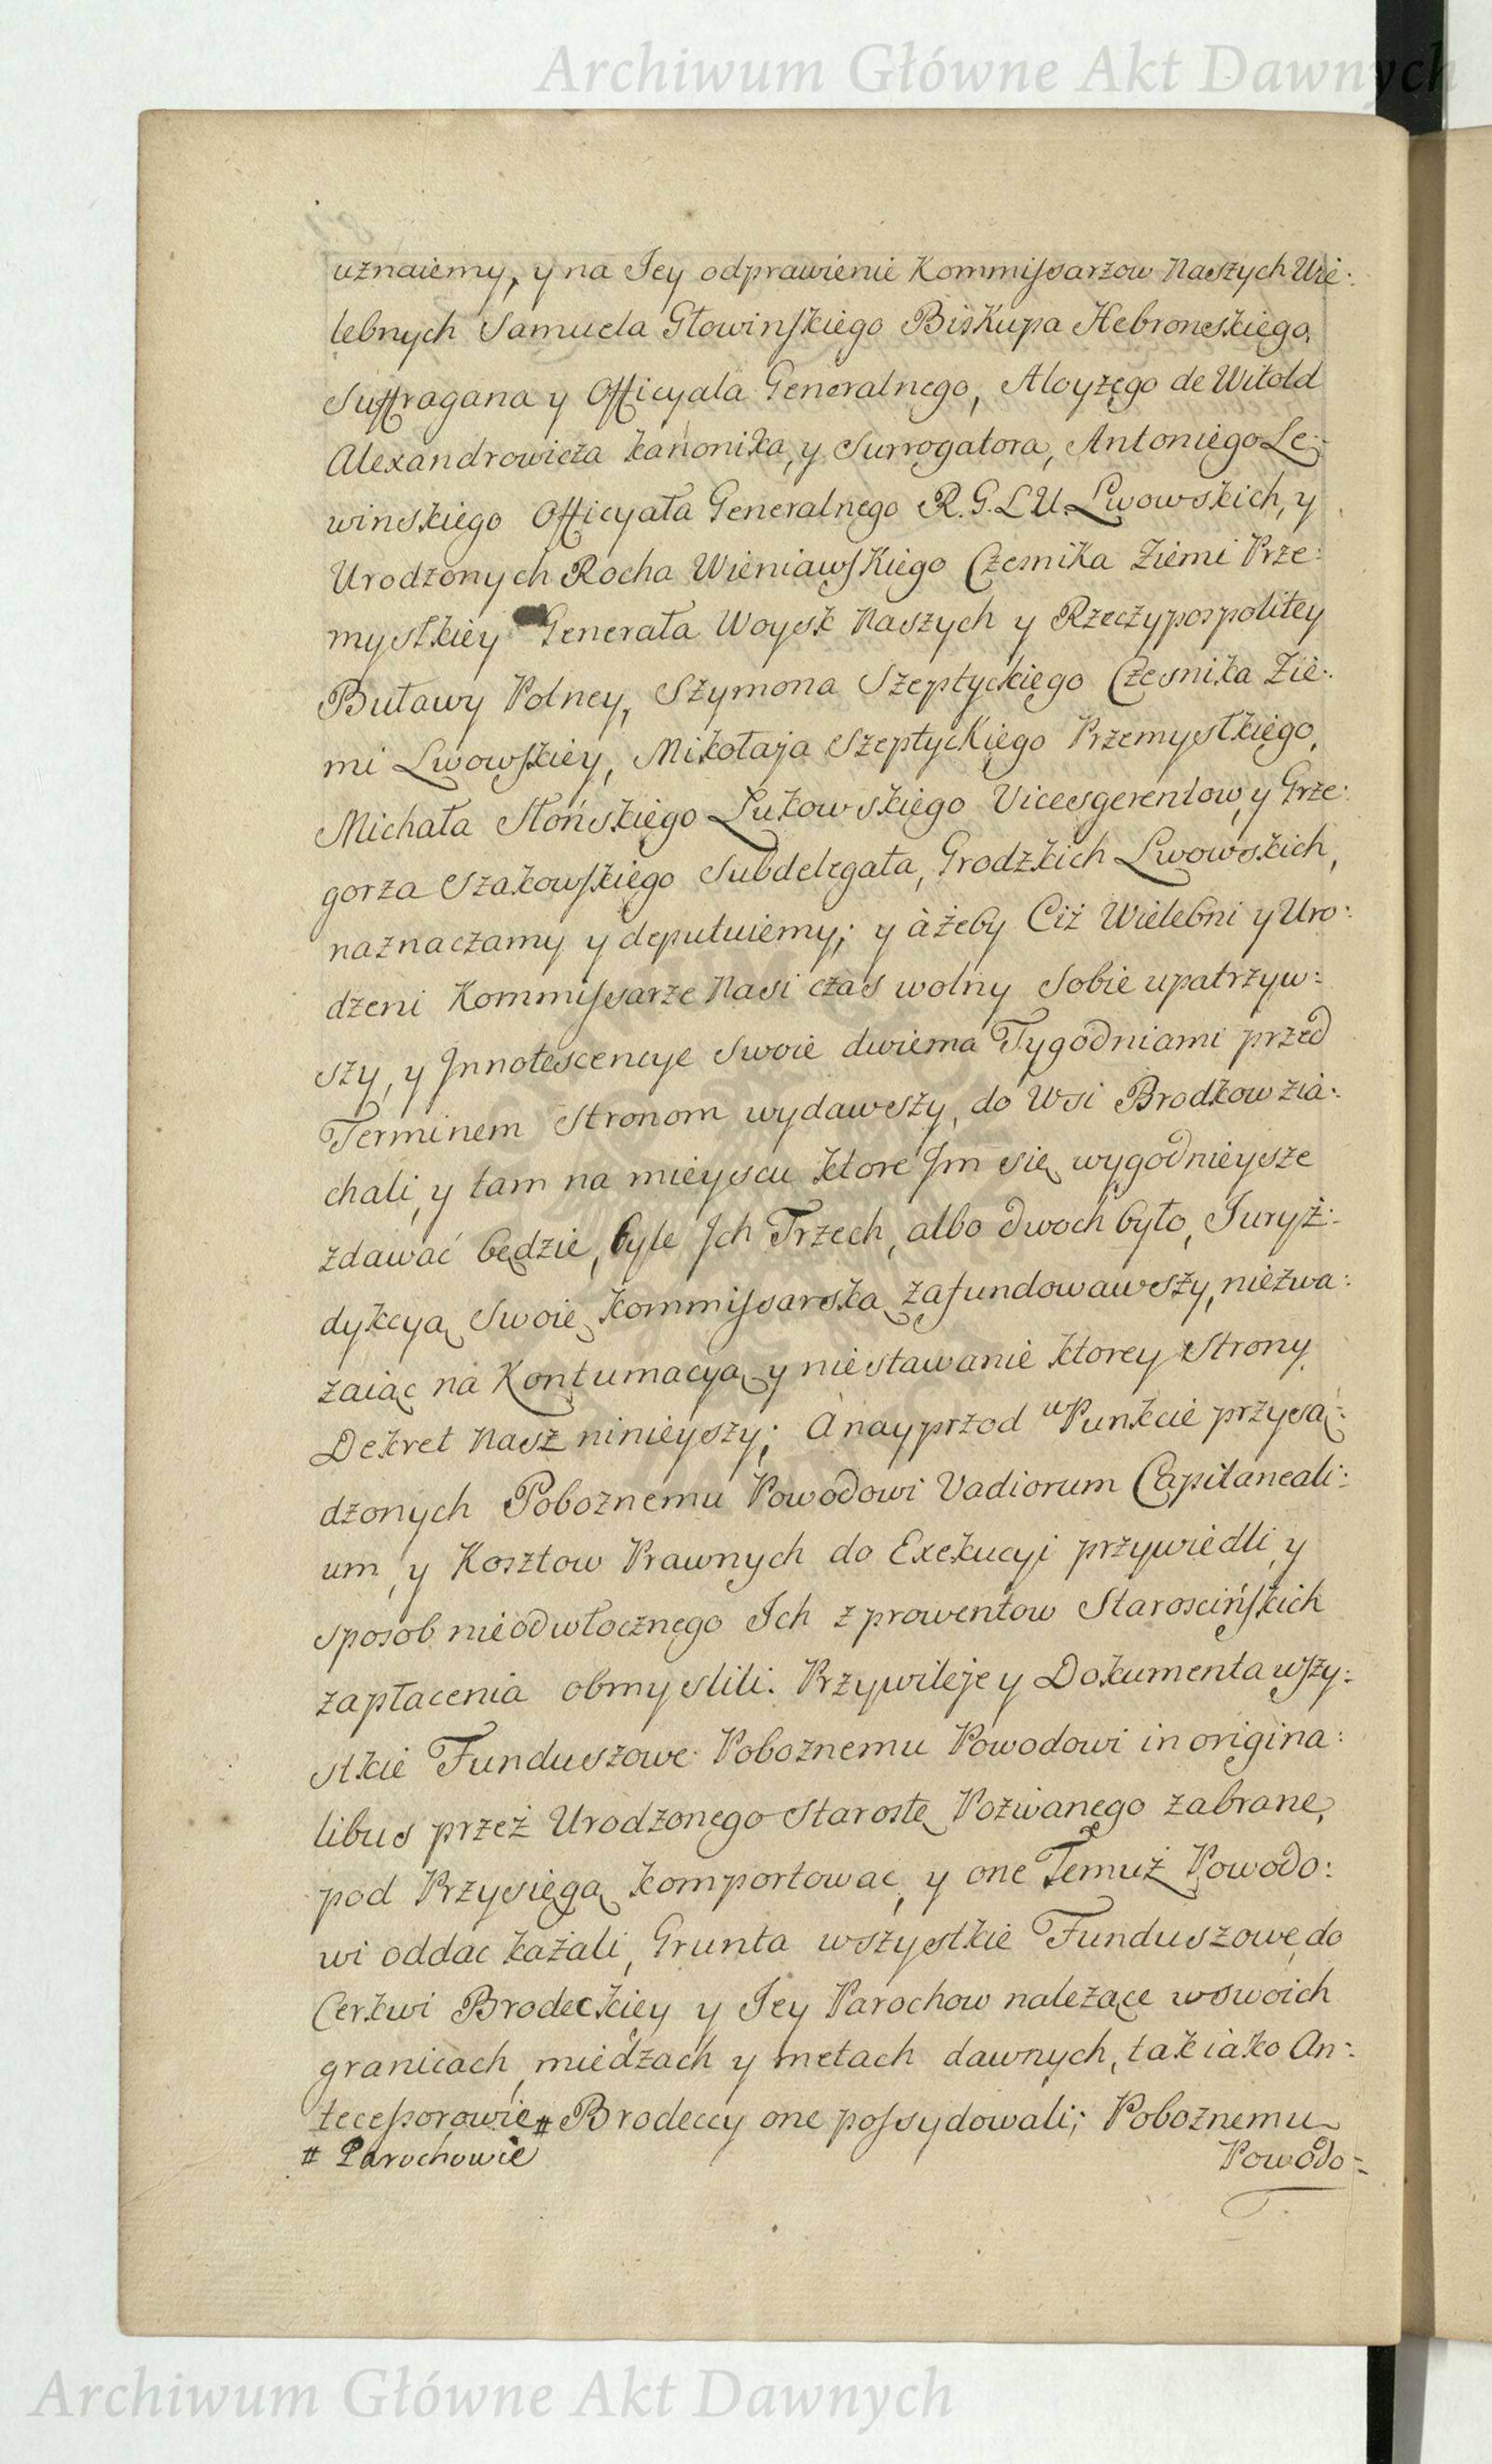 Archiwum Główne Akt Dawnych
uznaiemy, y na Jey odprawienie Kommissarzow Naszych Wie:
lebnych Samuela Głowinskiego Biskupa Hebronskiego,
Suffragana y Officyala Generalnego, Aloyzego de Witold
Alexandrowicza Kanonika, y Surrogatora, Antoniego Le:
winskiego Officyała Generalnego R. G. L U. Lwowskich, y
Urodzonych Rocha Wieniawskiego Czesnika Ziemi Prze:
myslkiey Generała Woysk Naszych y Rzeczypospolitey
Buławy Polney, Szymona Szeptyckiego Czesnika Zie:
mi Lwowskiey, Mikołaja Szeptyckiego Przemyslkiego,
Michała Słońskiego Łukowskiego Vicesgerentow, y Grze:
gorza Szakowskiego Subdelegata, Grodzkich Lwowskich,
naznaczamy y deputuiemy; y àżeby Ciż Wielebni y Uro:
dzeni Kommissarze Nasi czas wolny Sobie upatrzyw:
szy, y Jnnotescencye Swoie dwiema Tygodniami przed
Terminem Stronom wydawszy, do Wsi Brodkow zia:
chali, y tam na mieyscu ktore Jm się wygodnieysze
zdawać będzie, byle Jch Trzech, albo dwoch było, Juryz:
dykcyą Swoię Kommissarską zafundowawszy, niezwa:
zaiąc na Kontumacyą y niestawanie ktorey Strony
Dekret Nasz ninieyszy; A nayprzod w Punkcie przysą:
dzonych Poboznemu Powodowi Vadiorum Capitaneali:
um, y Kosztow Prawnych do Exekucyi przywiedli, y
sposob nieodwłocznego Jch z prowentow Starościńskich
zapłacenia obmyslili. Przywileje y Dokumenta wszy:
stkie Funduszowe Poboznemu Powodowi in origina:
libus przez Urodzonego Starostę Pozwanego zabrane,
pod Przysięgą komportowac, y one Temuż Powodo:
wi oddac każali, Grunta wszystkie Funduszowe, do
Cerkwi Brodeckiey y Jey Parochow nalezące w swoich
granicach, miedzach y metach dawnych, tak iako An:
tecessorowie # Brodeccy one possydowali; Poboznemu
# Parochowie
Powodo:
Archiwum Główne Akt Dawnych